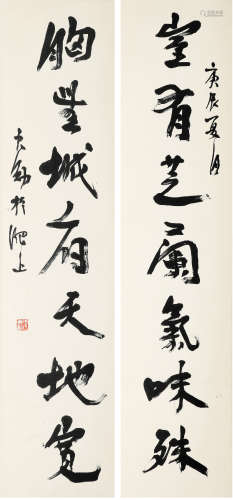 庚辰夏月
室有芝蘭氣味殊
胸無城府天地寬
於淝上